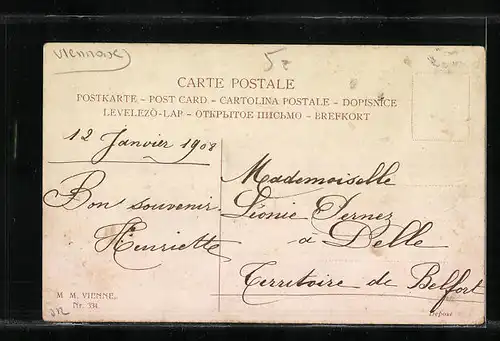 Viennoise
5-
CARTE POSTALE
POSTKARTE - POST CARD - CARTOLINA POSTALE - DOPISNICE
LEVELEZŐ-LAP - ОТКРЫТОЕ ПИСЬМО - BREFKORT
12 Janvier 1908
Bon souvenir
Henriette
Mademoiselle
Léonie Fernez
à Delle
Territoire de Belfort
M. M. VIENNE,
Nr. 334.
Déposé